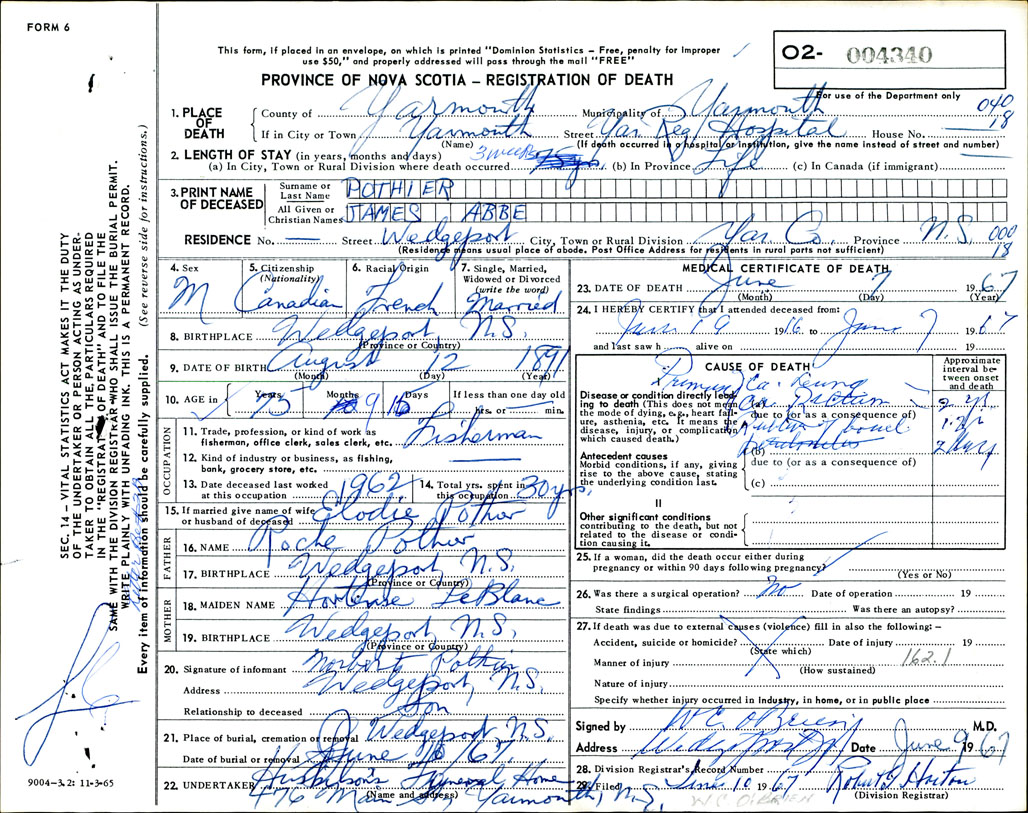 FORM 6
This form, if placed in an envelope, on which is printed "Dominion Statistics – Free, penalty for Improper
use $50," and properly addressed will pass through the mail "FREE"
O2- 004340
For use of the Department only
PROVINCE OF NOVA SCOTIA – REGISTRATION OF DEATH
040
18
1. PLACE OF DEATH
County of Yarmouth Municipality of Yarmouth
If in City or Town Yarmouth Street Yar Reg Hospital House No.
(Name) (If death occurred in a hospital or institution, give the name instead of street and number)
2. LENGTH OF STAY (in years, months and days)
(a) In City, Town or Rural Division where death occurred 3 weeks (b) In Province Life (c) In Canada (if immigrant)
3. PRINT NAME OF DECEASED
Surname or Last Name POTHIER
All Given or Christian Names JAMES ABBE
RESIDENCE No. — Street Wedgeport City, Town or Rural Division Yar Co. Province N.S. 000
(Residence means usual place of abode. Post Office Address for residents in rural parts not sufficient) 18
4. Sex M
5. Citizenship (Nationality) Canadian
6. Racial Origin French
7. Single, Married, Widowed or Divorced (write the word) Married
8. BIRTHPLACE Wedgeport, N.S.
(Province or Country)
9. DATE OF BIRTH August 12 1891
(Month) (Day) (Year)
10. AGE in Years 75 Months 9 Days If less than one day old
hrs. or min.
OCCUPATION
11. Trade, profession, or kind of work as fisherman, office clerk, sales clerk, etc. Fisherman
12. Kind of industry or business, as fishing, bank, grocery store, etc. —
13. Date deceased last worked at this occupation 1962
14. Total yrs. spent in this occupation 30 yrs.
15. If married give name of wife or husband of deceased Elodie Pothier
FATHER
16. NAME Roche Pothier
17. BIRTHPLACE Wedgeport, N.S.
(Province or Country)
MOTHER
18. MAIDEN NAME Hortense LeBlanc
19. BIRTHPLACE Wedgeport, N.S.
(Province or Country)
20. Signature of informant Norbert Pothier
Address Wedgeport, N.S.
Relationship to deceased Son
21. Place of burial, cremation or removal Wedgeport, N.S.
Date of burial or removal June 10 /67
22. UNDERTAKER Huskilson's Funeral Home
(Name and address) 476 Main St Yarmouth, N.S.
MEDICAL CERTIFICATE OF DEATH
23. DATE OF DEATH June 7 1967
(Month) (Day) (Year)
24. I HEREBY CERTIFY that I attended deceased from:
19 to June 7 1967
and last saw h alive on 19
CAUSE OF DEATH
Approximate interval between onset and death
Disease or condition directly leading to death (This does not mean the mode of dying, e.g., heart failure, asthenia, etc. It means the disease, injury, or complication which caused death.)
Primary Ca. Lung
due to (or as a consequence of)
bowel
(b)
Antecedent causes
Morbid conditions, if any, giving rise to the above cause, stating the underlying condition last.
due to (or as a consequence of)
(c)
II
Other significant conditions
contributing to the death, but not related to the disease or condition causing it.
25. If a woman, did the death occur either during pregnancy or within 90 days following pregnancy?
(Yes or No)
26. Was there a surgical operation? No Date of operation 19
State findings Was there an autopsy?
27. If death was due to external causes (violence) fill in also the following: –
Accident, suicide or homicide? Date of injury 19
(State which)
Manner of injury 162.1
(How sustained)
Nature of injury
Specify whether injury occurred in industry, in home, or in public place
Signed by W.C. O'Brien M.D.
Address Wedgeport Date June 9 1967
28. Division Registrar's Record Number
29. Filed June 10 1967 Robert J Horton
W.C. O'BRIEN (Division Registrar)
SEC. 14 – VITAL STATISTICS ACT MAKES IT THE DUTY
OF THE UNDERTAKER OR PERSON ACTING AS UNDER-
TAKER TO OBTAIN ALL THE PARTICULARS REQUIRED
IN THE "REGISTRATION OF DEATH" AND TO FILE THE
SAME WITH THE DIVISION REGISTRAR WHO SHALL ISSUE THE BURIAL PERMIT.
WRITE PLAINLY WITH UNFADING INK. THIS IS A PERMANENT RECORD.
Every item of information should be carefully supplied. (See reverse side for instructions.)
9004-3.2: 11-3-65